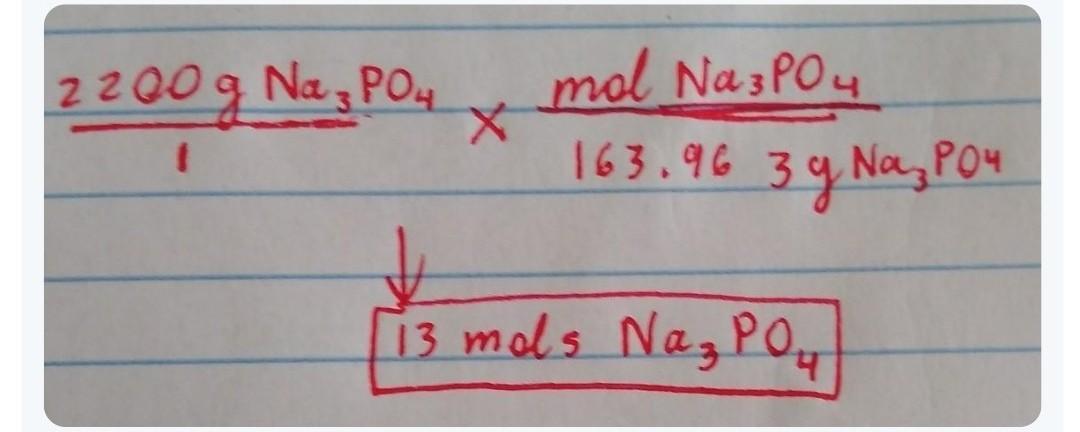 2200g Na₃PO₄ × mol Na₃PO₄
1 163.96 3g Na₃PO₄
13 mols Na₃PO₄